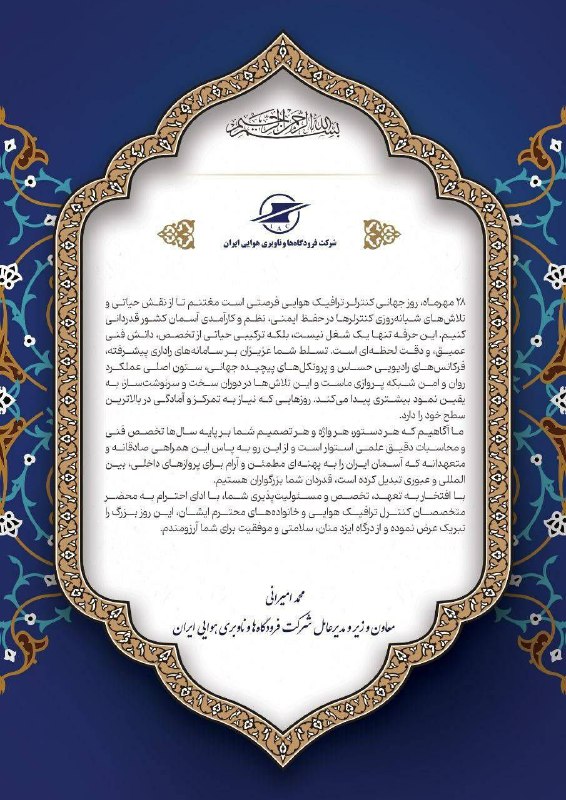 بسم الله الرحمن الرحیم
IAC
شرکت فرودگاه‌ها و ناوبری هوایی ایران
۲۸ مهرماه، روز جهانی کنترلر ترافیک هوایی فرصتی است مغتنم تا از نقش حیاتی و
تلاش‌های شبانه‌روزی کنترلرها در حفظ ایمنی، نظم و کارآمدی آسمان کشور قدردانی
کنیم. این حرفه تنها یک شغل نیست، بلکه ترکیبی حیاتی از تخصص، دانش فنی
عمیق، و دقت لحظه‌ای است. تسلط شما عزیزان بر سامانه‌های راداری پیشرفته،
فرکانس‌های رادیویی حساس و پروتکل‌های پیچیده جهانی، ستون اصلی عملکرد
روان و امن شبکه پروازی ماست و این تلاش‌ها در دوران سخت و سرنوشت‌ساز، به
یقین نمود بیشتری پیدا می‌کنند. روزهایی که نیاز به تمرکز و آمادگی در بالاترین
سطح خود را دارد.
ما آگاهیم که هر دستور، هر واژه و هر تصمیم شما بر پایه سال‌ها تخصص فنی
و محاسبات دقیق علمی استوار است و از این رو به پاس این همراهی صادقانه و
متعهدانه که آسمان ایران را به پهنه‌ای مطمئن و آرام برای پروازهای داخلی، بین
المللی و عبوری تبدیل کرده است، قدردان شما بزرگواران هستیم.
با افتخار به تعهد، تخصص و مسئولیت‌پذیری شما، با ادای احترام به محضر
متخصصان کنترل ترافیک هوایی و خانواده‌های محترم ایشان، این روز بزرگ را
تبریک عرض نموده و از درگاه ایزد منان، سلامتی و موفقیت برای شما آرزومندم.
محمد امیرانی
معاون وزیر و مدیرعامل شرکت فرودگاه‌ها و ناوبری هوایی ایران